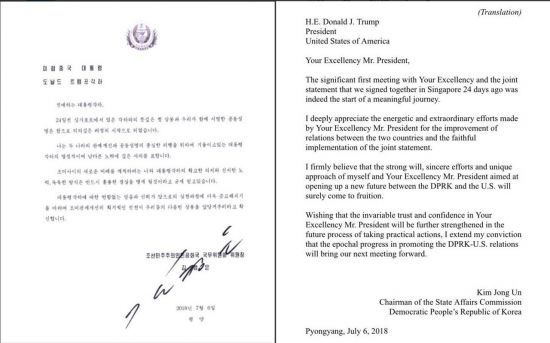 미합중국 대통령
도날드 트럼프각하
친애하는 대통령각하,
24일전 싱가포르에서 있은 각하와의 뜻깊은 첫 상봉과 우리가 함께 서명한 공동성
명은 참으로 의의깊은 려정의 시작으로 되였습니다.
나는 두 나라의 관계개선과 공동성명의 충실한 리행을 위하여 기울이고있는 대통령
각하의 열정적이며 남다른 노력에 깊은 사의를 표합니다.
조미사이의 새로운 미래를 개척하려는 나와 대통령각하의 확고한 의지와 진지한 노
력, 독특한 방식은 반드시 훌륭한 결실을 맺게 될것이라고 굳게 믿고있습니다.
대통령각하에 대한 변함없는 믿음과 신뢰가 앞으로의 실천과정에 더욱 공고해지기
를 바라며 조미관계개선의 획기적인 진전이 우리들의 다음번 상봉을 앞당겨주리라고 확
신합니다.
조선민주주의인민공화국 국무위원회 위원장
김
은
2018년 7월 6일
평 양
(Translation)
H.E. Donald J. Trump
President
United States of America
Your Excellency Mr. President,
The significant first meeting with Your Excellency and the joint
statement that we signed together in Singapore 24 days ago was
indeed the start of a meaningful journey.
I deeply appreciate the energetic and extraordinary efforts made
by Your Excellency Mr. President for the improvement of
relations between the two countries and the faithful
implementation of the joint statement.
I firmly believe that the strong will, sincere efforts and unique
approach of myself and Your Excellency Mr. President aimed at
opening up a new future between the DPRK and the U.S. will
surely come to fruition.
Wishing that the invariable trust and confidence in Your
Excellency Mr. President will be further strengthened in the
future process of taking practical actions, I extend my conviction
that the epochal progress in promoting the DPRK-U.S. relations
will bring our next meeting forward.
Kim Jong Un
Chairman of the State Affairs Commission
Democratic People's Republic of Korea
Pyongyang, July 6, 2018